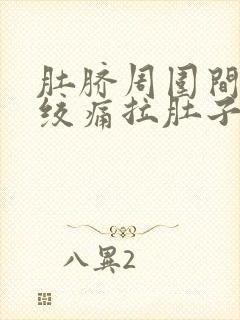 肚脐周围間
绞痛拉肚子
八異2